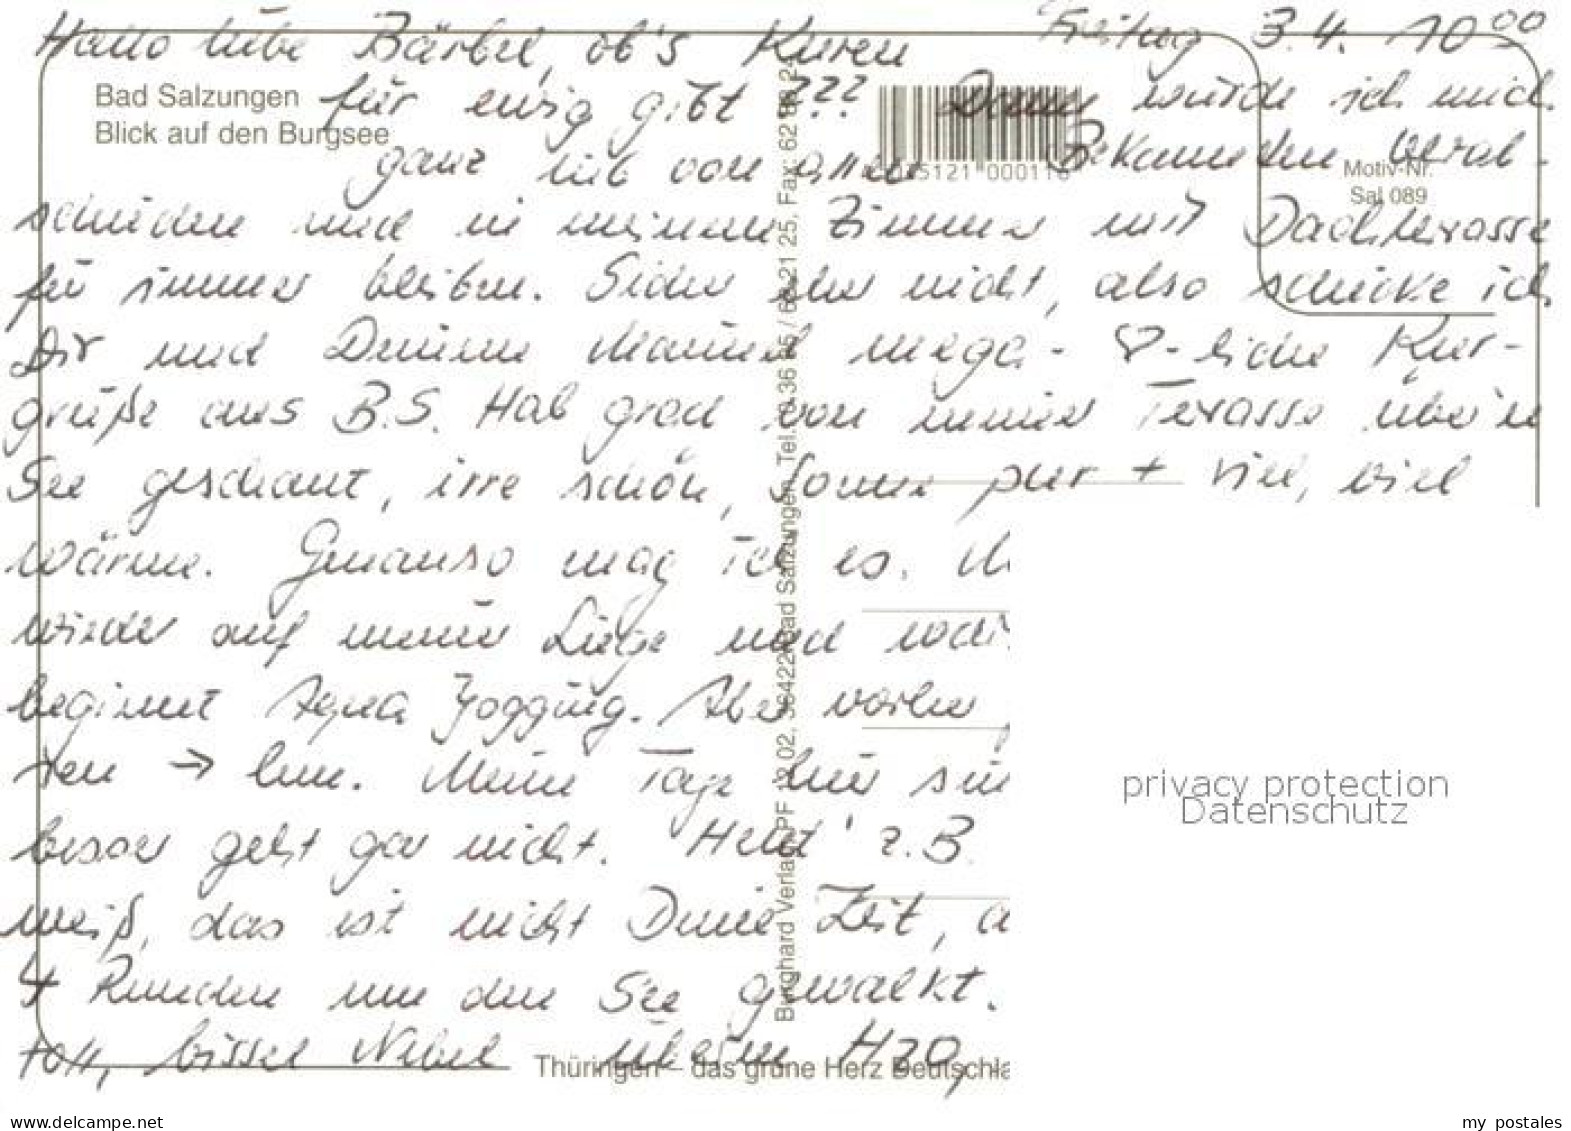 Freitag 3.4. 10 00
Hallo liebe Bärbel, ob's Kuren
für ewig gibt ??? Dann würde ich mich
ganz lieb von allen Bekannten verab-
schieden und in meinem Zimmer mit Dachterasse
für immer bleiben. Sicher eher nicht, also schicke ich
Dir und Deinem Manuel mega-♡-liche Kur-
grüße aus B.S. Hab grad von meiner Terasse über'n
See geschaut, irre schön, Sonne pur + viel, viel
Wärme. Genauso mag ich es.
wieder auf meiner Liege und
beginnt Aqua Jogging. Aber vorher
ren → lum. Meine Tage hier
besser geht gar nicht. Heut' z.B.
weiß, das ist nicht Deine Zeit,
4 Runden um den See gewalkt.
toll, bissel Nebel überm H2O,
Bad Salzungen
Blick auf den Burgsee
Motiv-Nr.
Sal 089
Burghard Verlag, PF 12 02, 36422 Bad Salzungen, Tel.
Thüringen – das grüne Herz Deutschla
privacy protection
Datenschutz
www.delcampe.net
my_postales